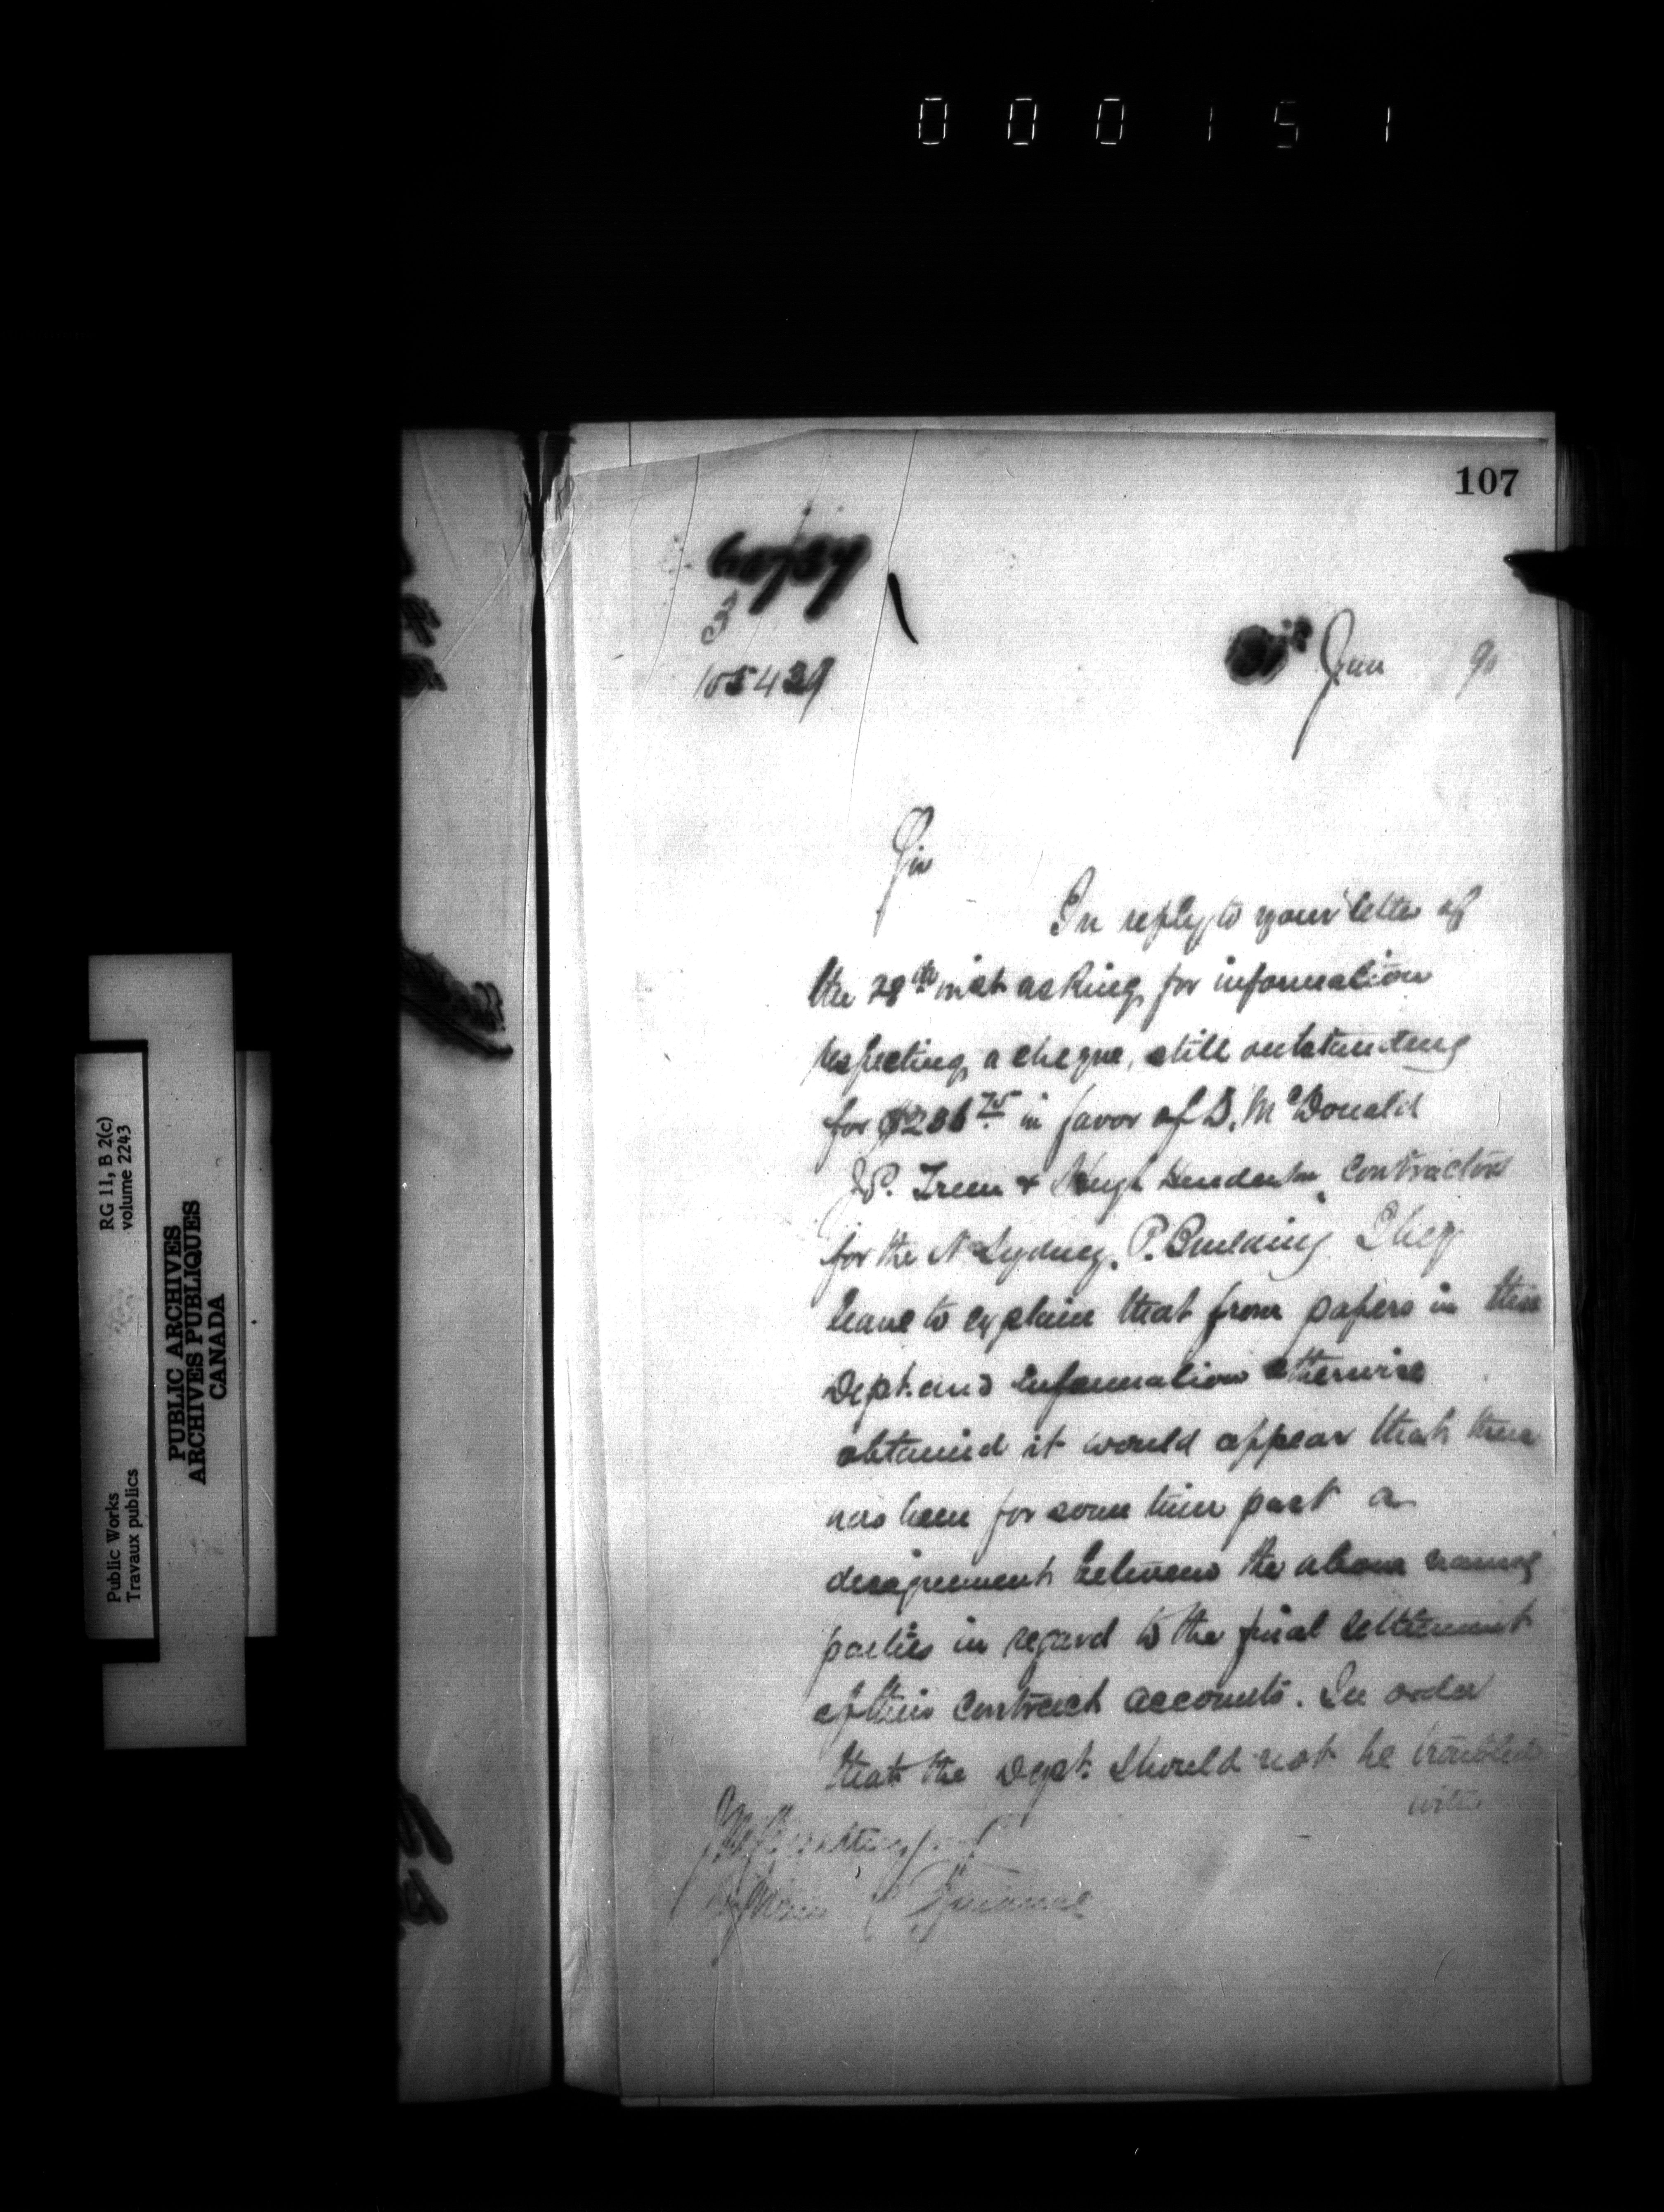 000151
107
3
105439
Jan 90
Sir
In reply to your letter of
the 28th inst asking for information
respecting a cheque, still outstanding
for $236 75 in favor of D. McDonald
J.P. & Hugh Henderson, contractors
for the N Sydney, P. Building I beg
leave to explain that from papers in this
Dept. and information otherwise
obtained it would appear that there
has been for some time past a
disagreement between the above named
parties in regard to the final settlement
of their contract accounts. In order
that the Dept. should not be troubled
with
Finance
Public Works
Travaux publics
RG 11, B 2(c)
volume 2243
PUBLIC ARCHIVES
ARCHIVES PUBLIQUES
CANADA